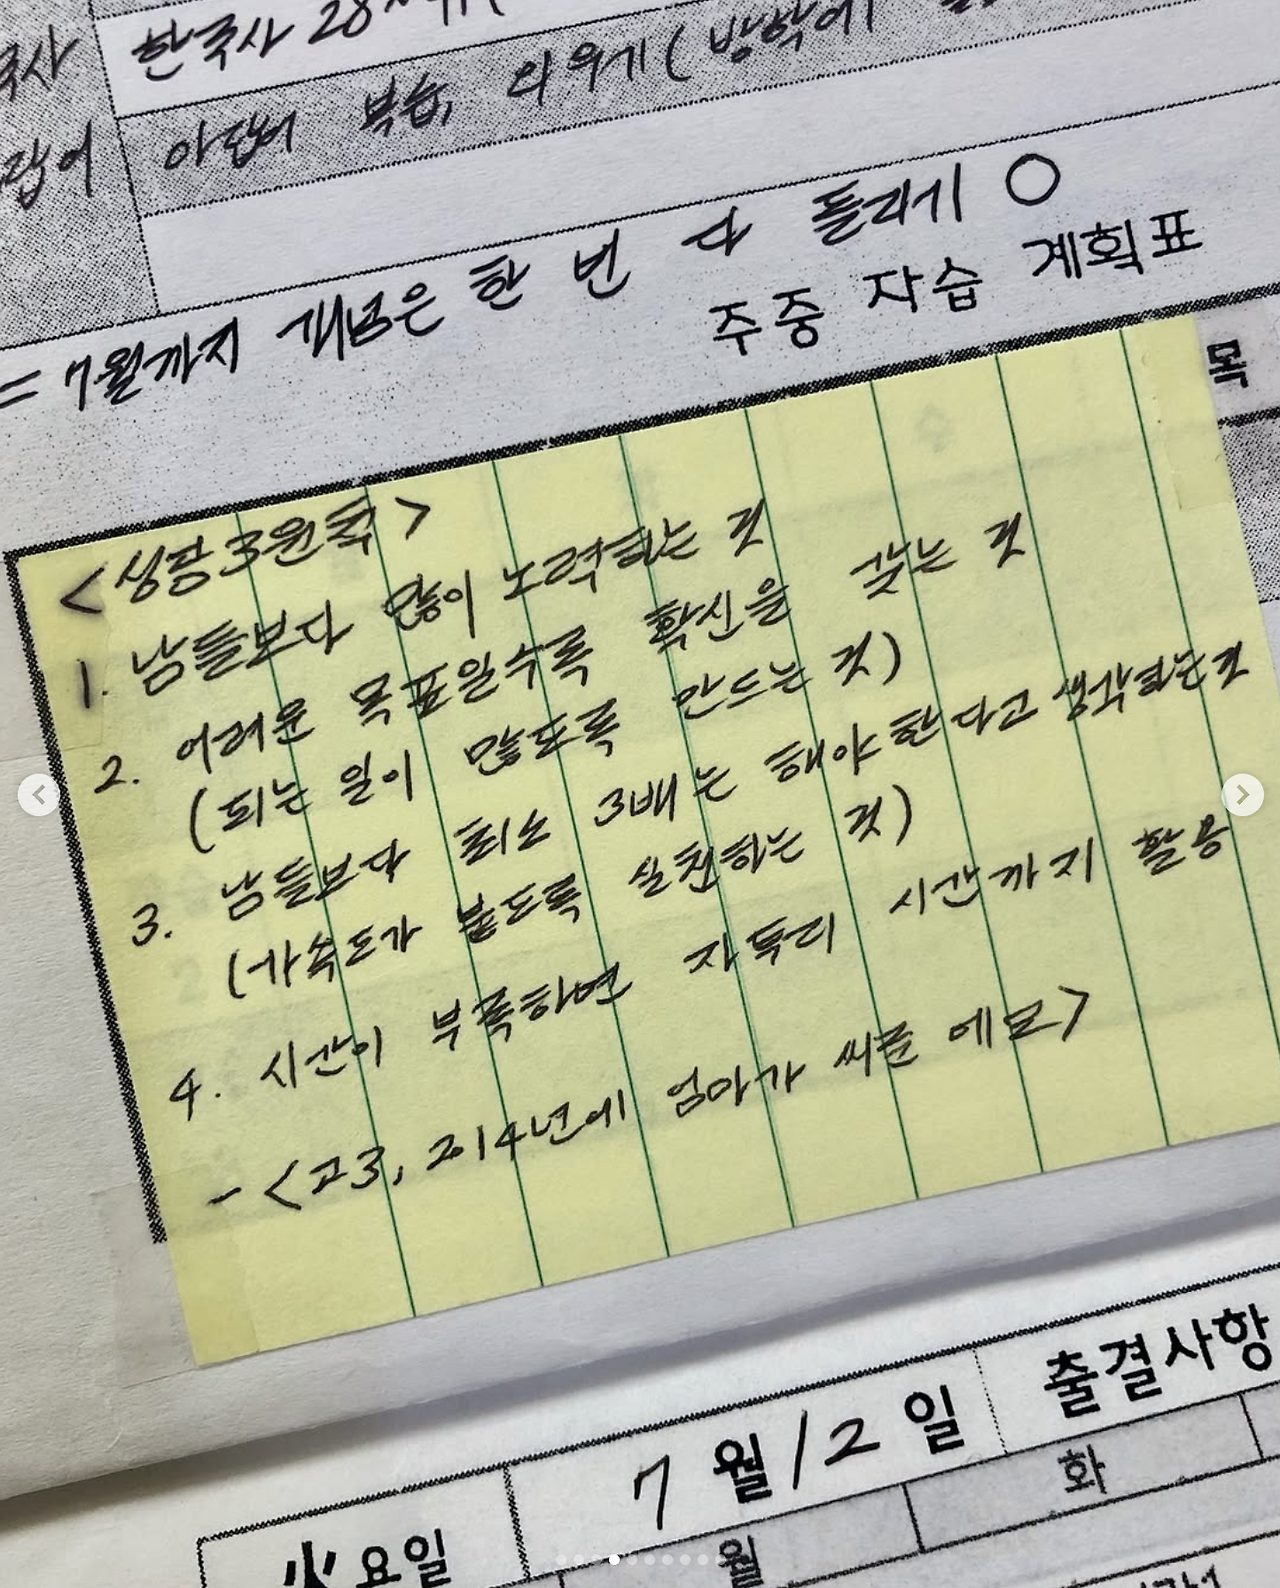 국사 한국사 28
랍어 아랍어 복습, 외우기 ( 방학에
= 7월까지 개념은 한 번 다 돌리기 O
주중 자습 계획표
목
<성공 3원칙>
1. 남들보다 많이 노력하는 것
2. 어려운 목표일수록 확신을 갖는 것
(되는 일이 많도록 만드는 것)
3. 남들보다 최소 3배는 해야 한다고 생각하는 것
(가속도가 붙도록 실천하는 것)
4. 시간이 부족하면 자투리 시간까지 활용
- <고3, 2014년에 엄마가 써준 메모>
7월/2일 출결사항
火요일 월 화